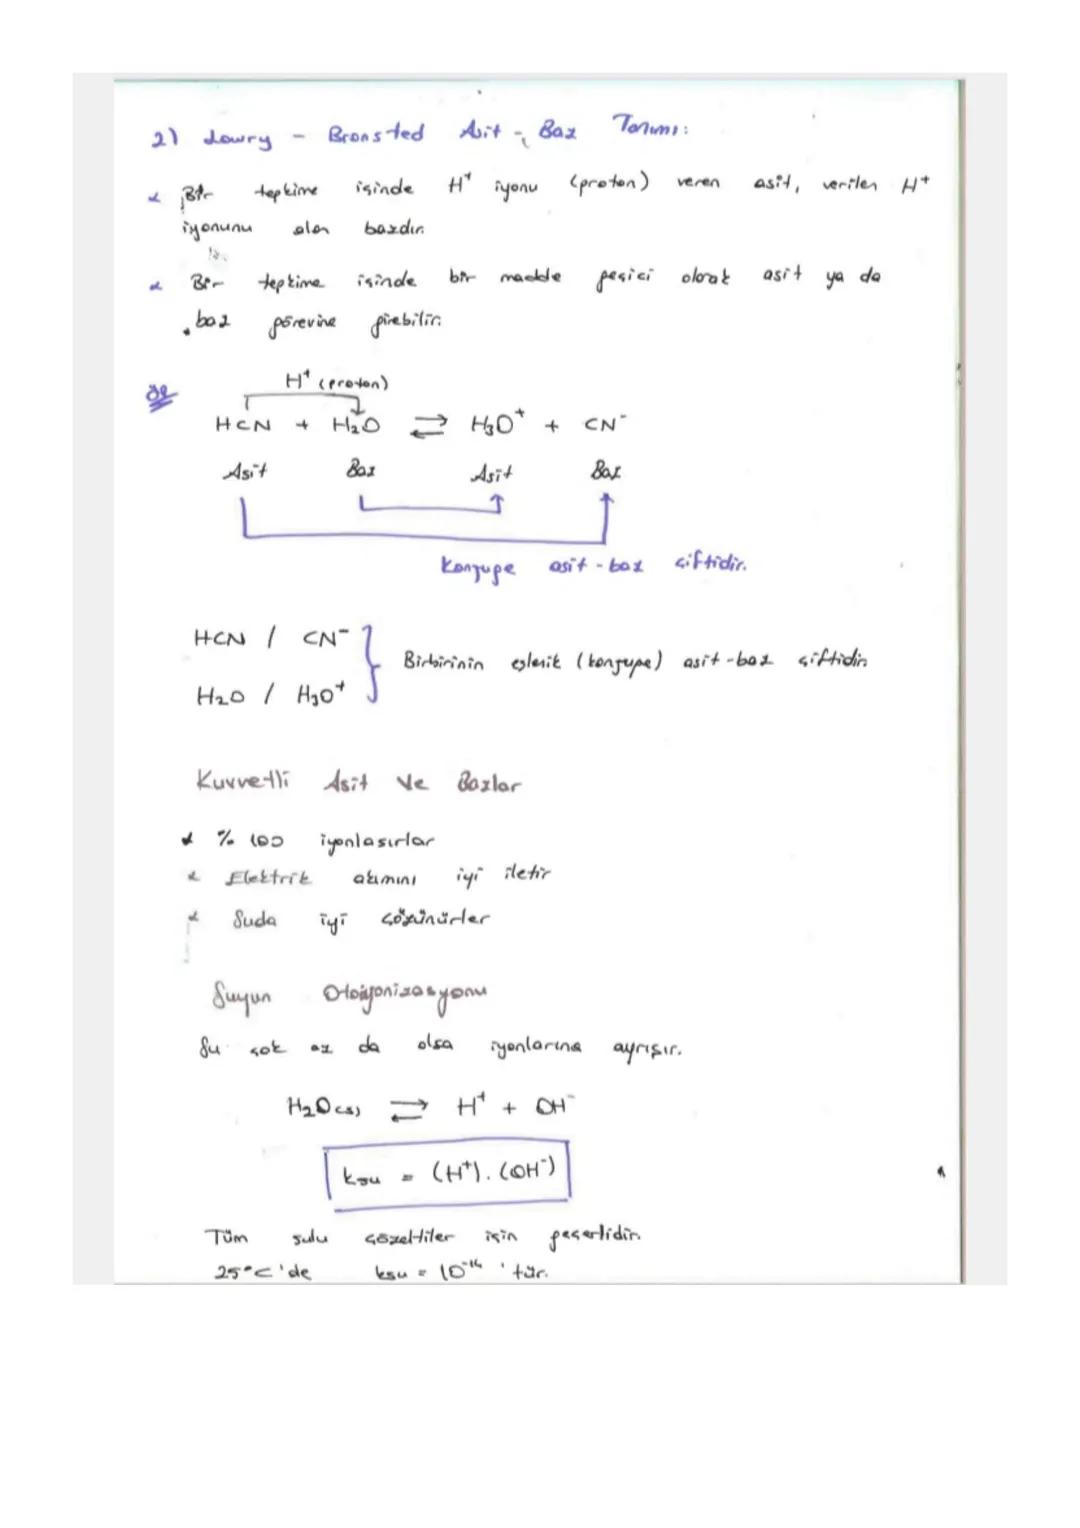 2) Lowry - Bronsted Asit - Baz Tanımı:
Bir tepkime içinde H⁺ iyonu (proton) veren asit, verilen H⁺
iyonunu alan bazdır.
Bir tepkime içinde bir madde geçici olarak asit ya da
baz görevine girebilir.
ör
H⁺ (proton)
HCN + H₂O ⇄ H₃O⁺ + CN⁻
Asit Baz Asit Baz
Konjuge asit - baz çiftidir.
HCN / CN⁻
Birbirinin eşlenik (konjuge) asit - baz çiftidir.
H₂O / H₃O⁺
Kuvvetli Asit Ve Bazlar
% 100 iyonlaşırlar
Elektrik akımını iyi iletir
Suda iyi çözünürler
Suyun Otoiyonizasyonu
Su çok az da olsa iyonlarına ayrışır.
H₂O(s) ⇄ H⁺ + OH⁻
ksu = (H⁺).(OH⁻)
Tüm sulu çözeltiler için geçerlidir.
25°C'de ksu = 10⁻¹⁴ 'tür.